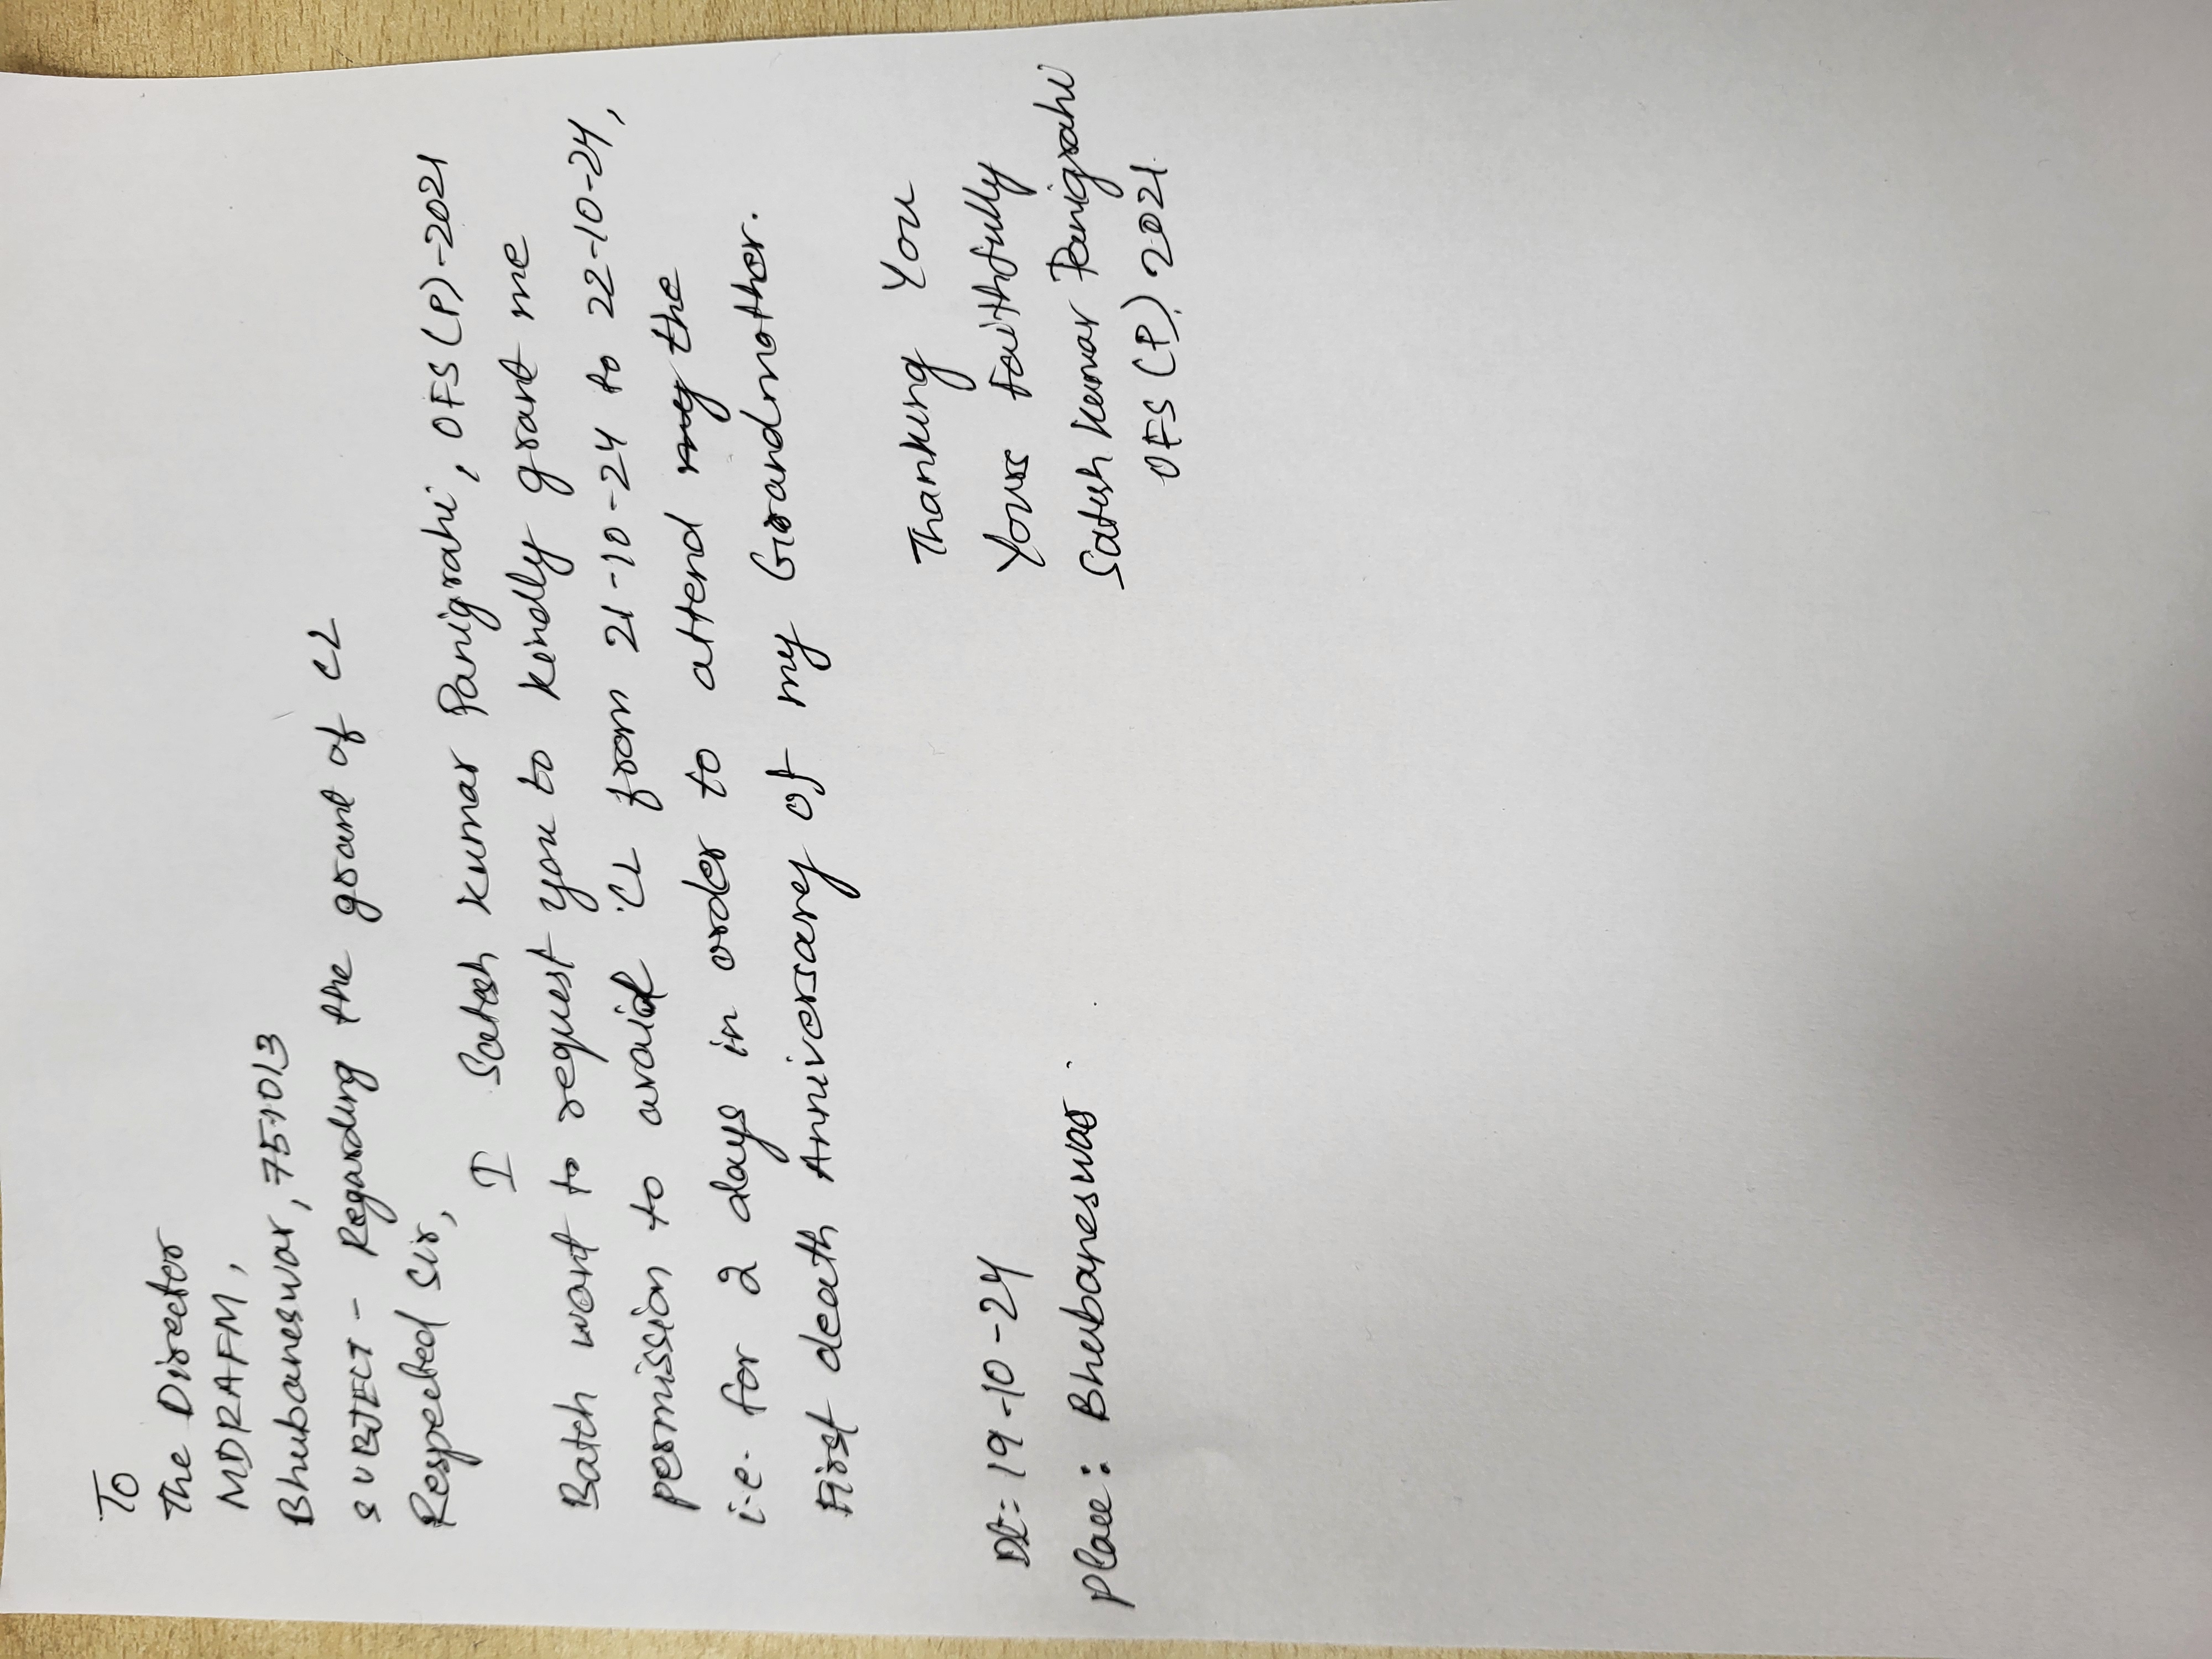 To
The Director
MDRAFM,
Bhubaneswar, 751013
SUBJECT - Regarding the grant of CL
Respected Sir,
I Satish Kumar Panigrahi, OFS (P)-2021
Batch want to request you to kindly grant me
permission to avail CL from 21-10-24 to 22-10-24,
i.e. for 2 days in order to attend my the
First death Anniversary of my Grandmother.
Thanking You
Yours Faithfully
Satish Kumar Panigrahi
OFS (P) 2021
Dt: 19-10-24
Place: Bhubaneswar